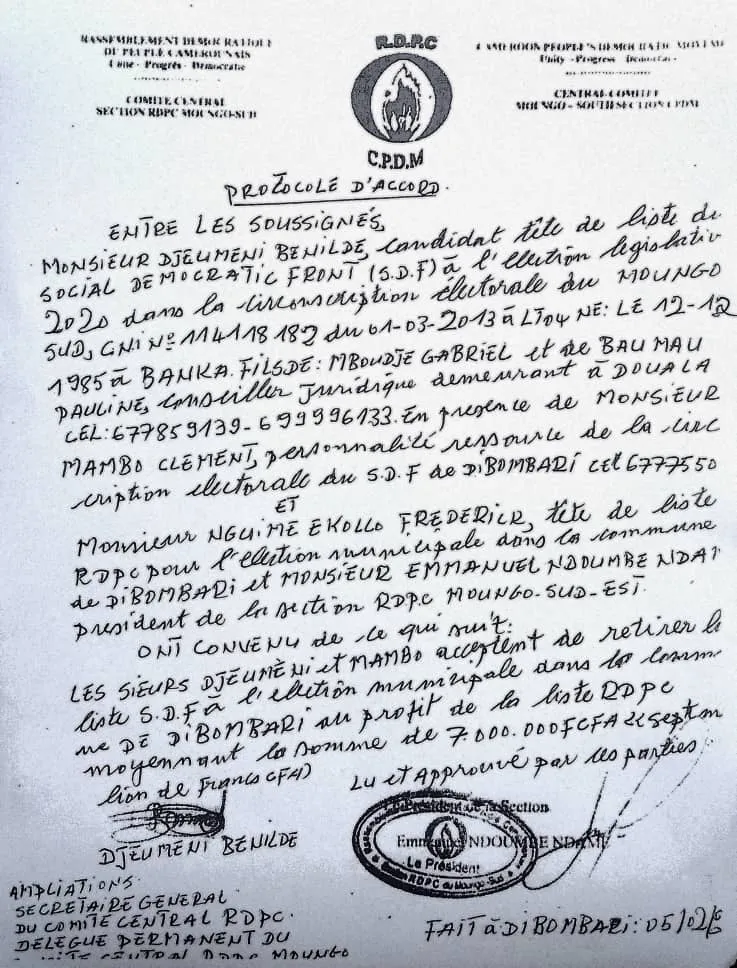 RASSEMBLEMENT DEMOCRATIQUE
DU PEUPLE CAMEROUNAIS
Unie - Progrès - Démocratie
COMITE CENTRAL
SECTION RDPC MOUNGO-SUD
R.D.P.C
C.P.D.M
CAMEROON PEOPLE'S DEMOCRATIC MOVEME
Unity - Progress Democrac
CENTRAL COMITEE
MOUNGO - SOUTH SECTION CPDM
PROTOCOLE D'ACCORD.
ENTRE LES SOUSSIGNÉS,
MONSIEUR DJEUMENI BENILDE, candidat tête de liste du
SOCIAL DEMOCRATIC FRONT (S.D.F) à l'election legislativ
2020 dans la circonscription électorale du MOUNGO
SUD, CNI N° 114118182 du 01-03-2013 à LT04 NE: LE 12-12
1985 à BANKA. FILS DE: MBOUDJE GABRIEL et de BAUMAU
PAULINE, conseiller Juridique demeurant à DOUALA
CEL: 677859139 - 699996133. En presence de MONSIEUR
MAMBO CLEMENT, personnalité ressource de la circ
cription electorale du S.D.F de DIBOMBARI cel 6777550
ET
Monsieur NGUIME EKOLLO FREDERICK, tête de liste
RDPC pour l'election municipale dans la commune
de DIBOMBARI et MONSIEUR EMMANUEL NDOUMBE NDA
president de la section RDPC MOUNGO-SUD-EST.
ONT CONVENU de ce qui suit:
LES SIEURS DJEUMÈNI et MAMBO acceptent de retirer la
liste S.D.F à l'election municipale dans la commu
ne DE DIBOMBARI au profit de la liste RDPC
moyennant la somme de 7.000.000FCFA << Sept m
lion de Francs CFA)
Lu et Approuvé par les parties
DJEUMENI BENILDE
Président de la Section
Emmanuel NDOUMBE NDAME
Le Président
Section RDPC du Moungo-Sud
AMPLIATIONS:
SECRETAIRE GENERAL
DU COMITE CENTRAL RDPC.
DELEGUE PERMANENT DU
COMITE CENTRAL RDPC MOUNGO
FAIT à DIBOMBARI: 05/02/